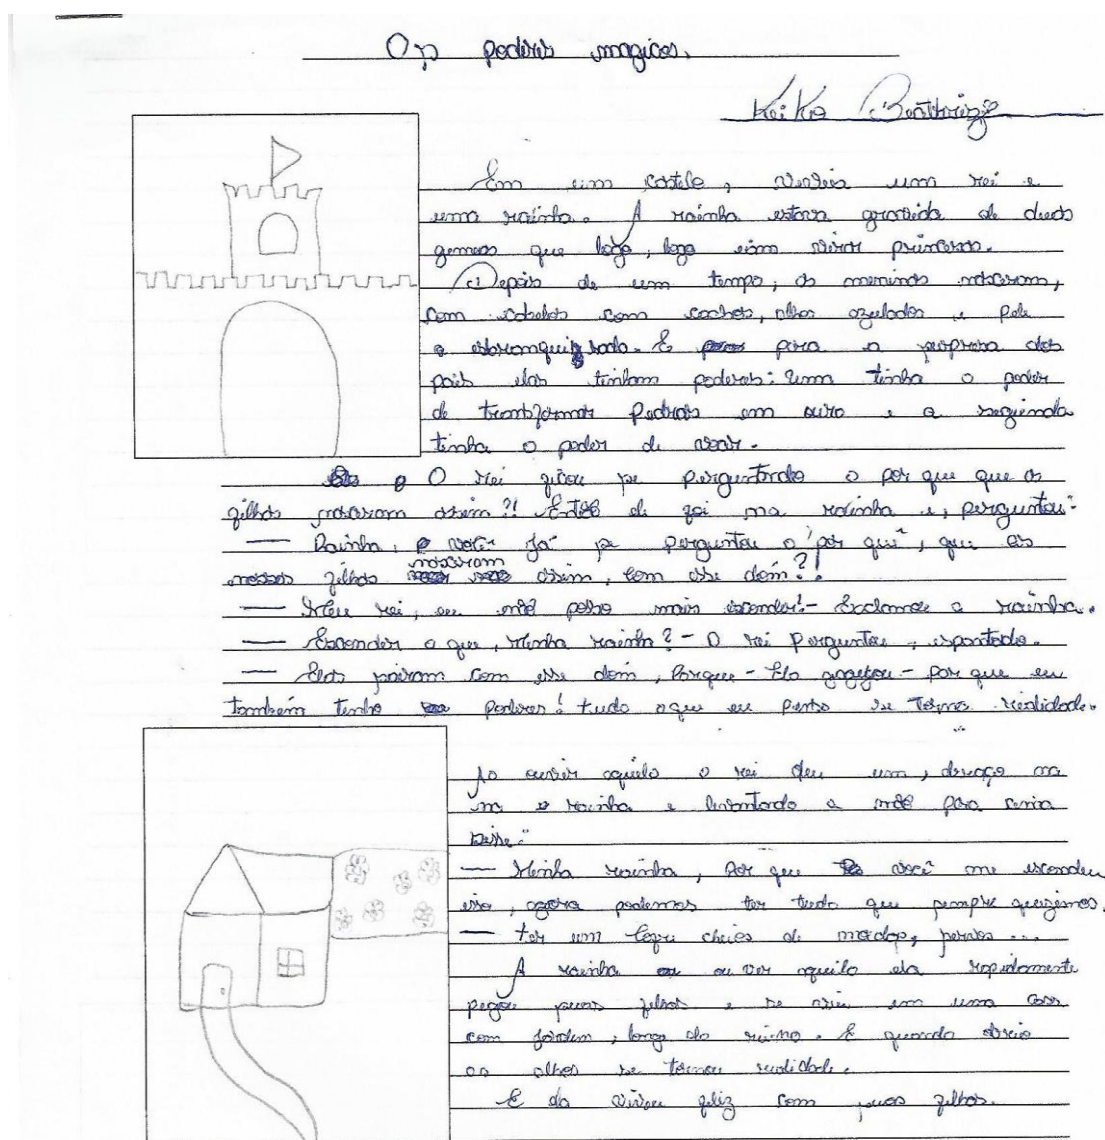 Os poderes magicos.
Keiko Beathriz
Em um castelo, vivia um rei e
uma rainha. A rainha estava gravida de duas
gemeas que logo, logo iam virar princesas.
Depois de um tempo, as meninas nasceram,
com cabelos com cachos, olhos azulados e pele
esbranquisada. E para a surpresa dos
pais elas tinham poderes: uma tinha o poder
de transformar Pedras em ouro e a segunda
tinha o poder de voar.
O rei ficou se perguntando o por que que as
filhas nasceram assim?! Então ele foi na rainha e, perguntou:
— Rainha, você já se perguntou o por quê, que as
nossas filhas nasceram assim, com esse dom?!
— Meu rei, eu não posso mais esconder! - Exclamou a rainha.
— Esconder o que, Minha rainha? - O rei Perguntou, espantado.
— Elas sairam com esse dom, Porque - Ela gagejou - Por que eu
também tenho Poderes! tudo oque eu penso se torna realidade.
Ao ouvir aquilo o rei deu um, abraço na
rainha e levantando a mão para cima
Disse:
— Minha rainha, Por que você me escondeu
isso, agora podemos ter tudo que sempre quezemos.
— ter um cofre cheios de moedas, servos ...
A rainha ou ver aquilo ela rapidamente
pegou suas filhas e se viu em uma casa
com jardim, longe do reino. E quando abriu
os olhos se tornou realidade.
E ela viveu feliz com suas filhas.